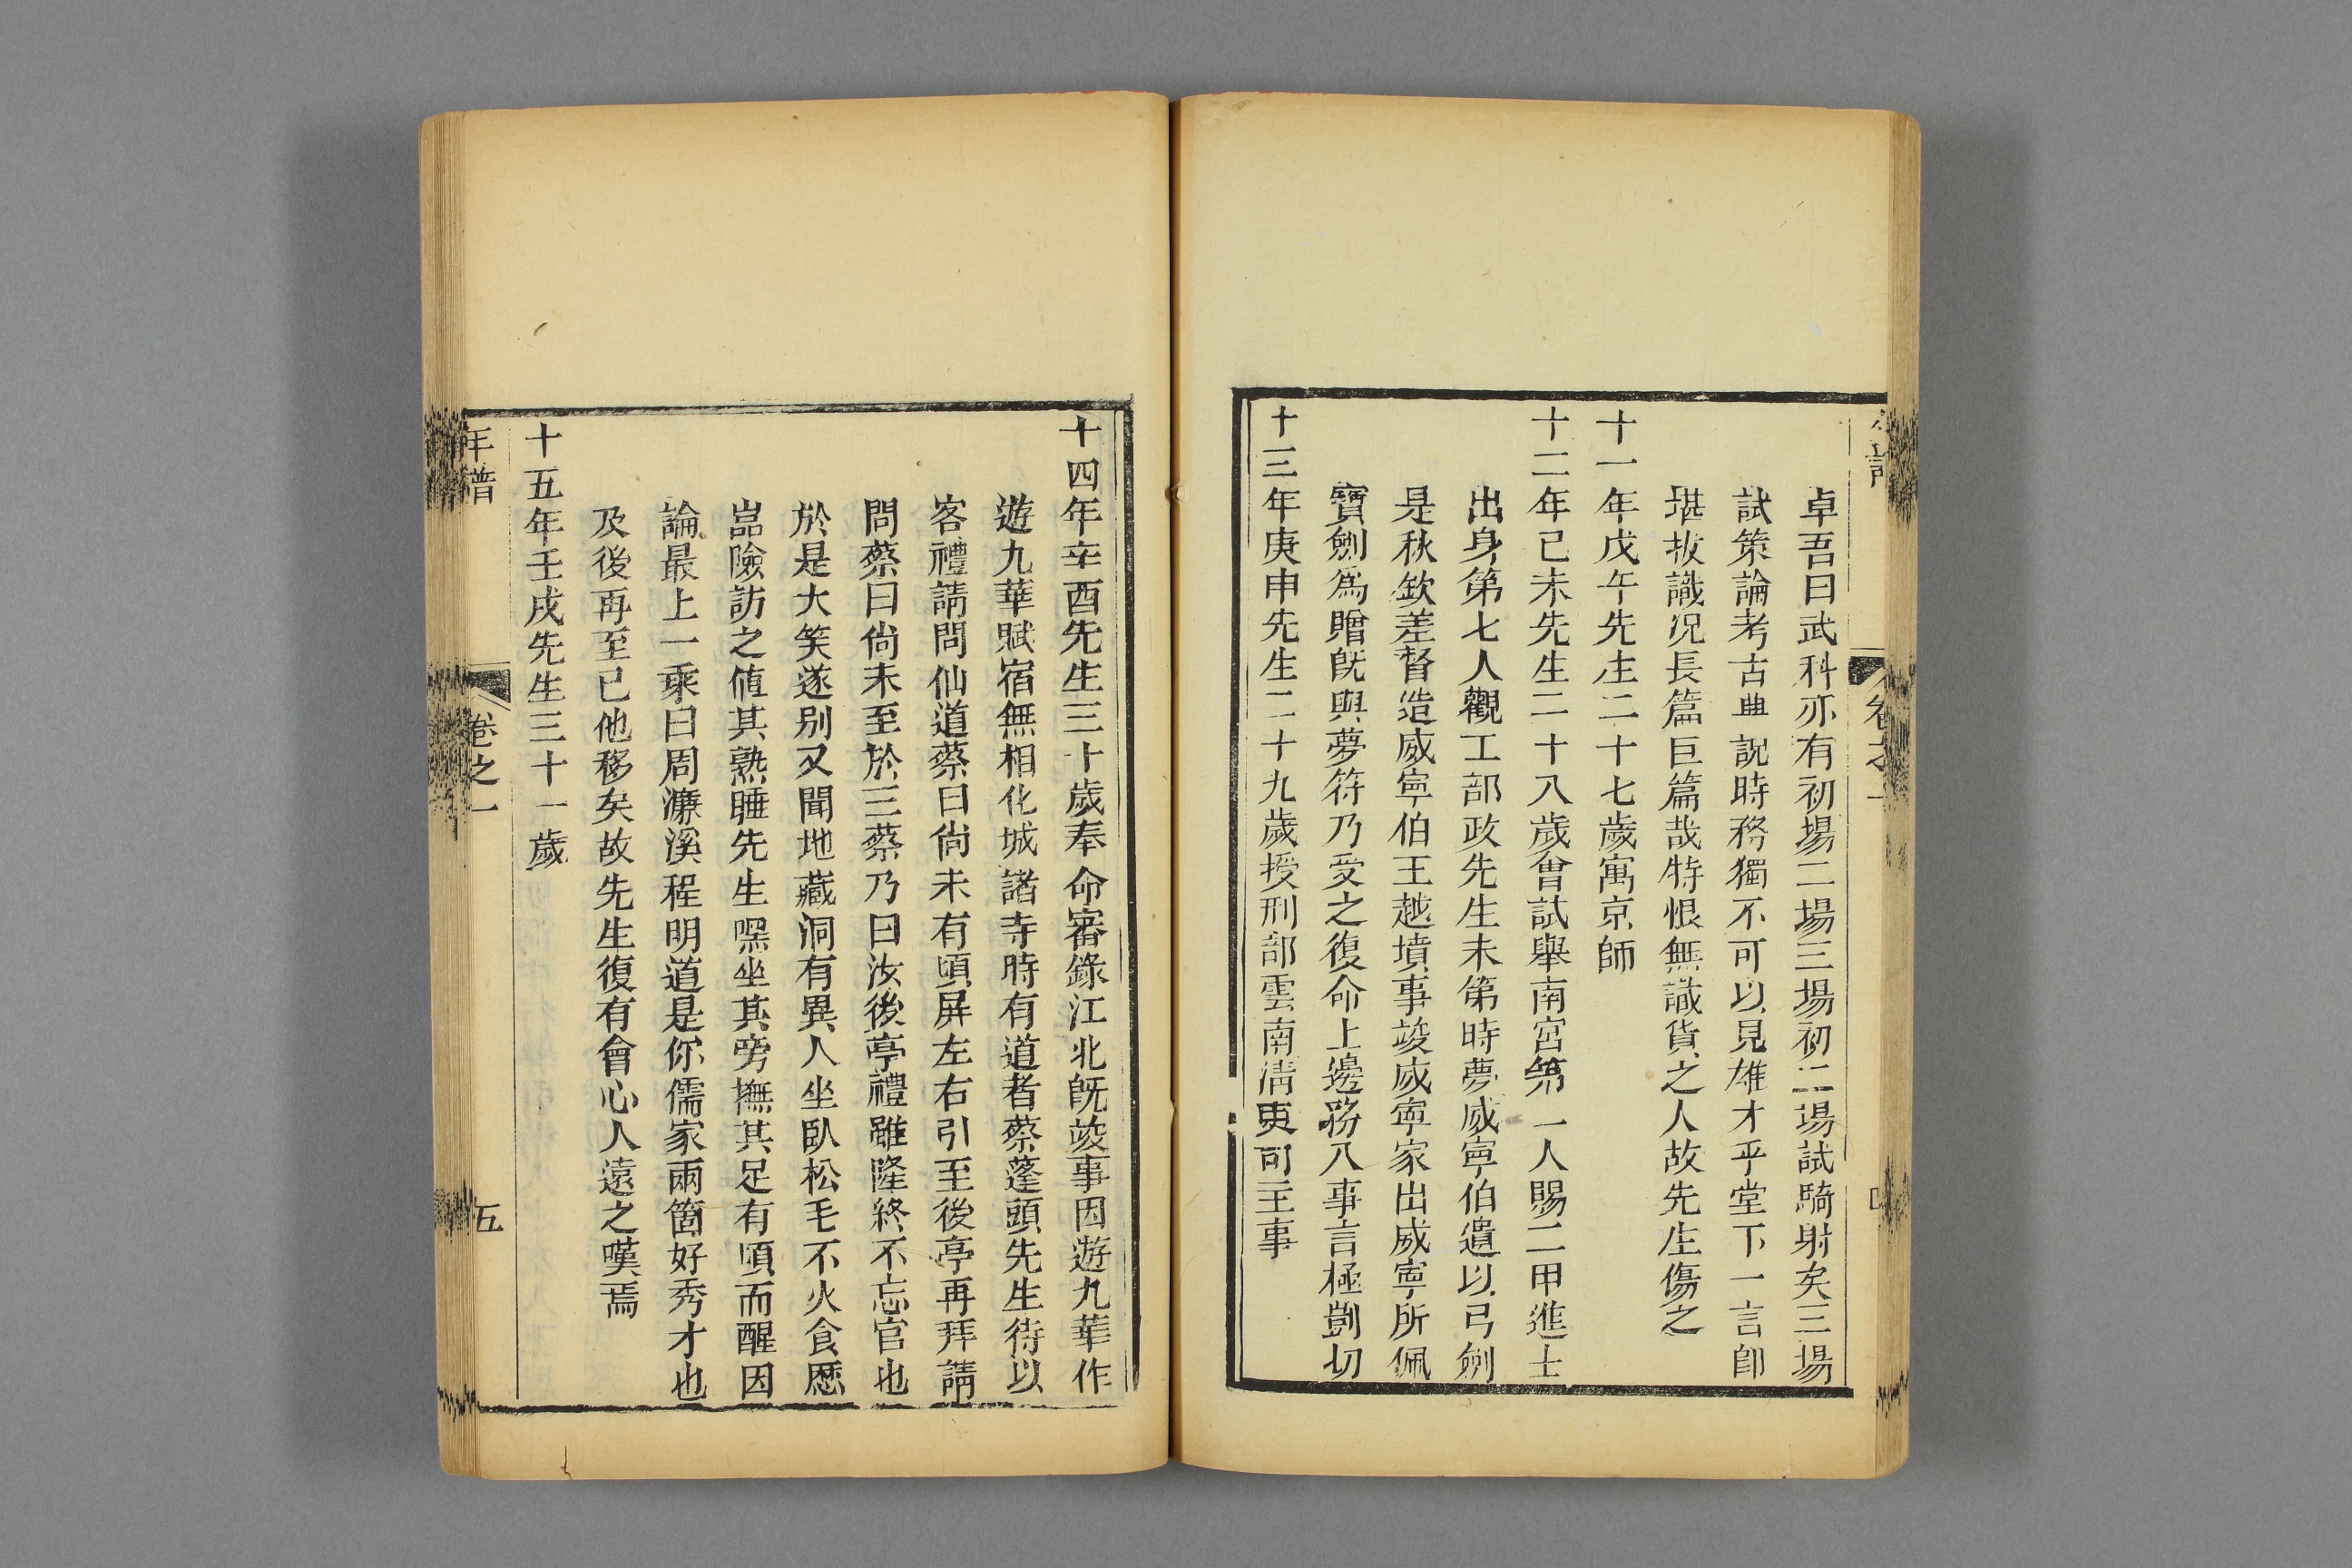 卓吾曰武科亦有初場二場三場初二場試騎射矣三場
試策論考古典說時務獨不可以見雄才乎堂下一言卽
堪拔識况長篇巨篇哉特恨無識貨之人故先生傷之
十一年戊午先生二十七歲寓京師
十二年己未先生二十八歲會試舉南宮第一人賜二甲進士
出身第七人觀工部政先生未第時夢威寧伯遺以弓劍
是秋欽差督造威寧伯王越墳事竣威寧家出威寧所佩
寶劍爲贈旣與夢符乃受之復命上邊務八事言極剴切
十三年庚申先生二十九歲授刑部雲南清吏司主事
十四年辛酉先生三十歲奉命審錄江北旣竣事因遊九華作
遊九華賦宿無相化城諸寺時有道者蔡蓬頭先生待以
客禮請問仙道蔡曰尙未有頃屏左右引至後亭再拜請
問蔡曰尙未至於三蔡乃曰汝後亭禮雖隆終不忘官也
於是大笑遂別又聞地藏洞有異人坐臥松毛不火食歷
嵓險訪之値其熟睡先生嘿坐其旁撫其足有頃而醒因
論最上一乘曰周濂溪程明道是你儒家兩箇好秀才也
及後再至已他移矣故先生復有會心人遠之嘆焉
十五年壬戌先生三十一歲
年譜
卷之一
五